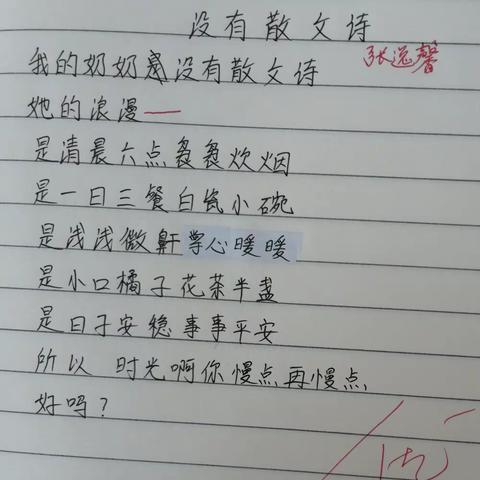 没有散文诗
张逸馨
我的奶奶没有散文诗
她的浪漫——
是清晨六点袅袅炊烟
是一日三餐白瓷小碗
是浅浅微鼾掌心暖暖
是小口橘子花茶半盏
是日子安稳事事平安
所以 时光啊你慢点再慢点
好吗?